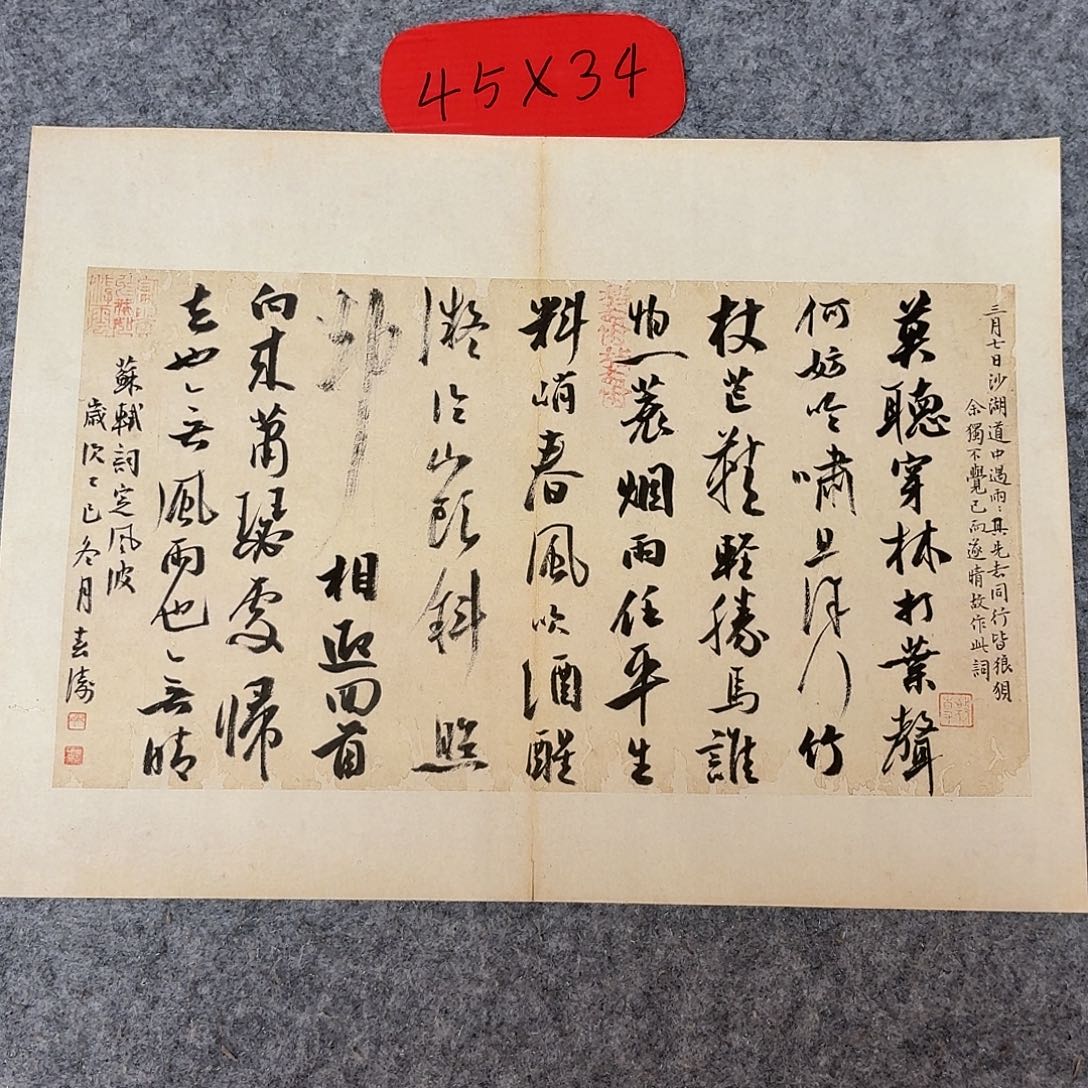 45X34
三月七日沙湖道中遇雨〻具先去同行皆狼狽
余獨不覺已而遂晴故作此詞
莫聽穿林打葉聲
何妨吟嘯且徐行竹
杖芒鞋輕勝馬誰
怕一蓑烟雨任平生
料峭春風吹酒醒
微冷山頭斜照
却相迎回首
向來蕭瑟處歸
去也〻無風雨也〻無晴
蘇軾詞定風波
歲次乙巳冬月